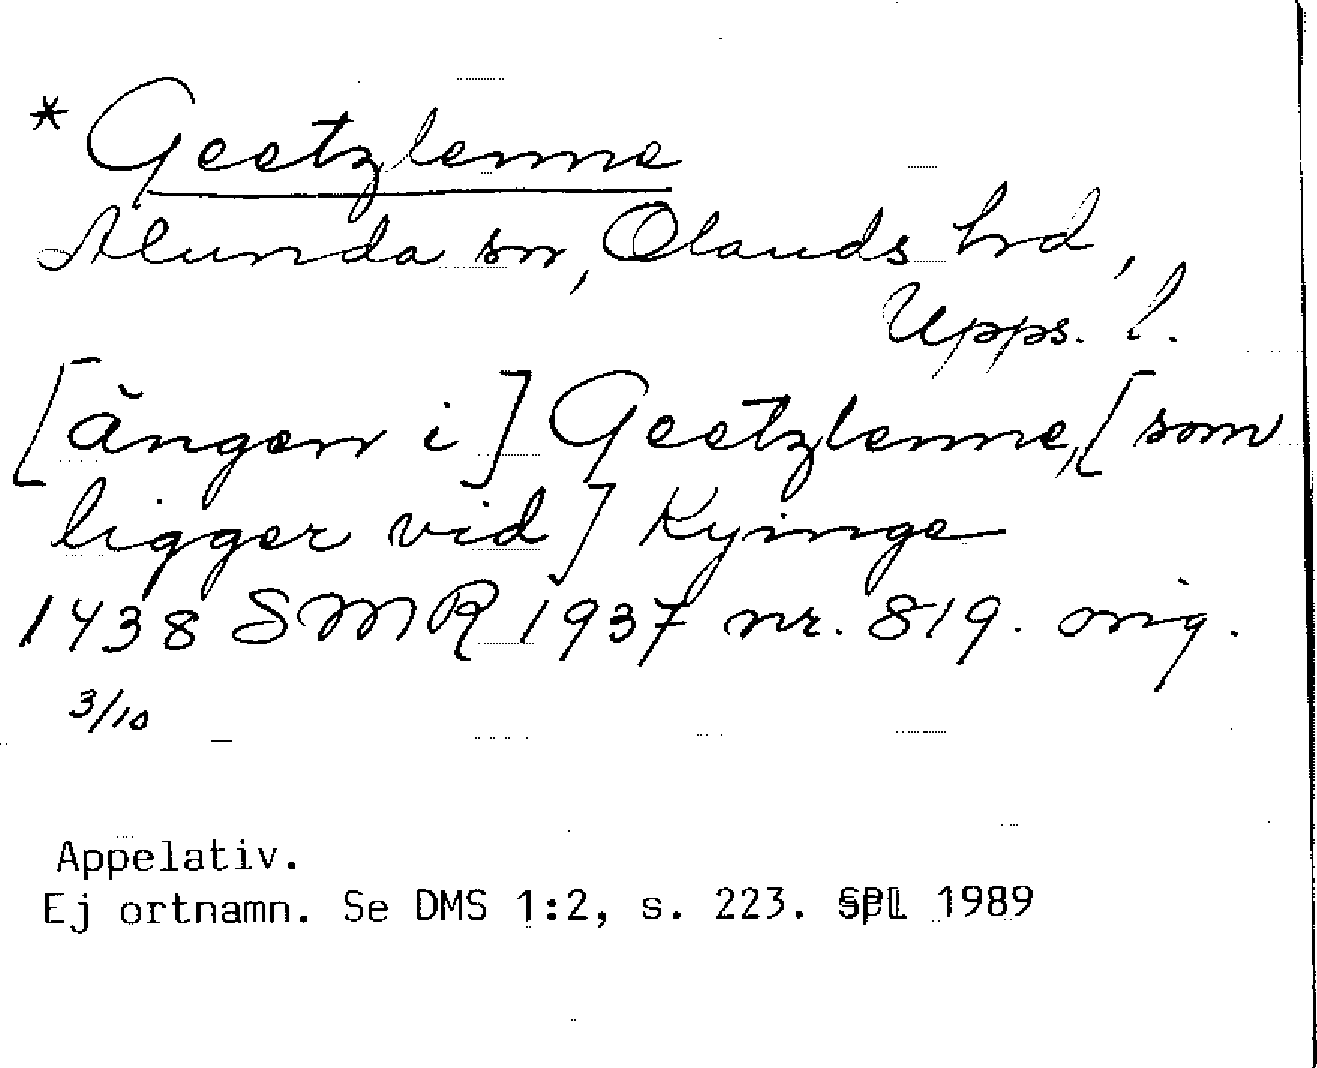 * Geetzlenne
Alunda sn, Olands hd,
Upps. l.
[ängen i] Geetzlenne, [som
ligger vid] Kyinge
1438 SMR 1937 nr. 819. orig.
3/10
Appelativ.
Ej ortnamn. Se DMS 1:2, s. 223. 1989